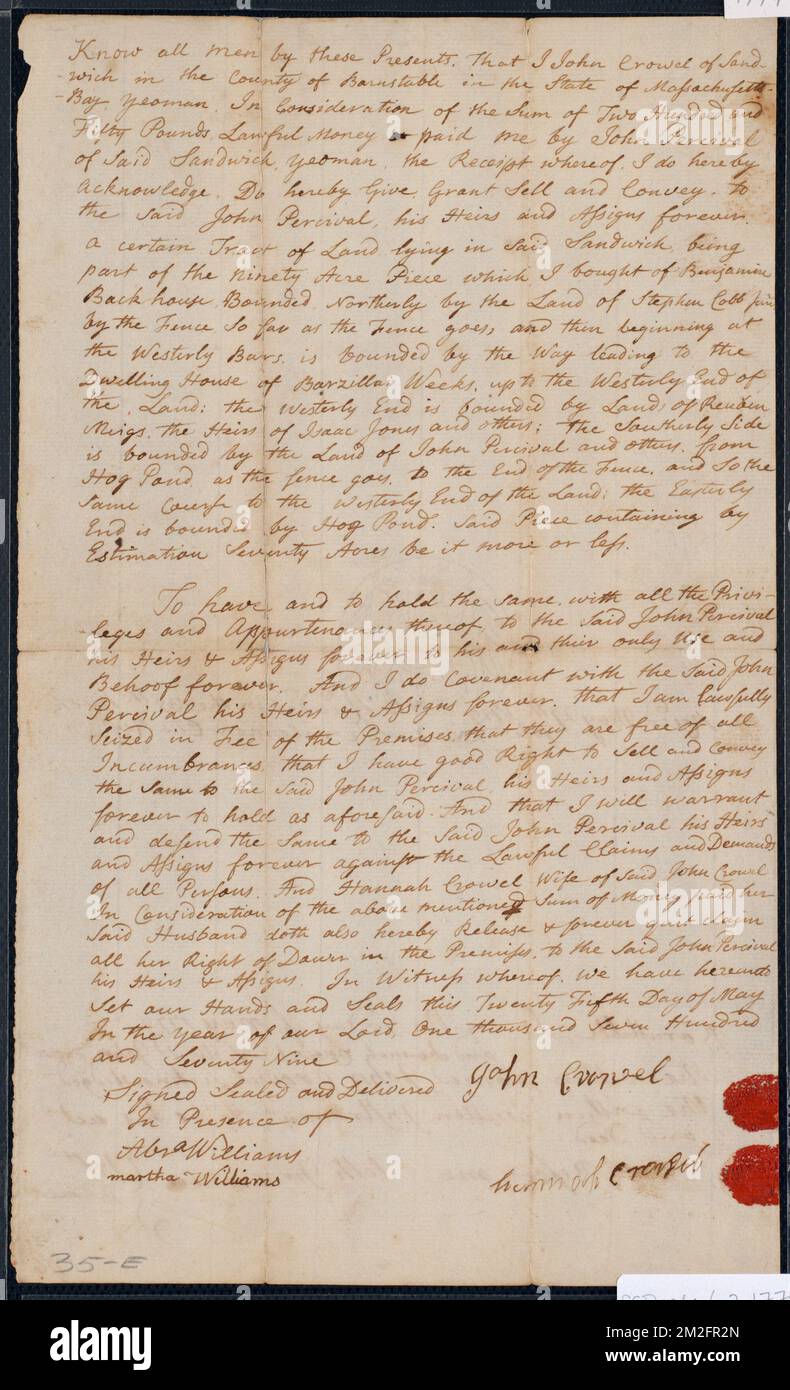 Know all men by these Presents. That I John Crowel of Sand-
-wich in the County of Barnstable in the State of Massachusetts-
-Bay Yeoman. In Consideration of the Sum of Two Hundred and
Fifty Pounds Lawful Money paid me by John Percival
of Said Sandwich, Yeoman, the Receipt whereof. I do hereby
acknowledge. Do hereby Give. Grant. Sell and Convey. to
the Said John Percival, his Heirs and Assigns forever.
a certain Tract of Land lying in Said Sandwich, being
part of the ninety Acre Piece which I bought of Benjamin
Backhouse. Bounded. Northerly by the Land of Stephen Cobb Junr
by the Fence. So far as the Fence goes, and then beginning at
the Westerly Bars. is bounded by the Way leading to the
Dwelling House of Barzillai Weeks. up to the Westerly End of
the Land: the Westerly End is bounded by Lands of Reuben
Meigs. the Heirs of Isaac Jones and others; the Southerly Side
is bounded by the Land of John Percival and others. from
Hog Pond. as the fence goes. to the End of the Fence. and So the
Same Course to the Westerly End of the Land: the Easterly
End is bounded by Hog Pond. Said Piece containing by
Estimation Seventy Acres be it more or less.
To have and to hold the Same. with all the Privi-
-leges and Appurtenances thereof to the Said John Percival
his Heirs & Assigns forever to his and their only Use and
Behoof forever. And I do Covenant with the Said John
Percival his Heirs & Assigns forever. that I am Lawfully
Seized in Fee of the Premises, that they are free of all
Incumbrances, that I have good Right to Sell and Convey
the Same to the Said John Percival, his Heirs and Assigns
forever to hold as aforesaid. And that I will warrant
and defend the Same to the Said John Percival his Heirs
and Assigns forever against the Lawful Claims and Demands
of all Persons. And Hannah Crowel Wife of Said John Crowel
In Consideration of the above mentioned Sum of Money paid her
Said Husband doth also hereby Release & forever quit claim
all her Right of Dower in the Premises, to the Said John Percival
his Heirs & Assigns. In Witness whereof. we have hereunto
Set our Hands and Seals this Twenty Fifth Day of May
In the Year of our Lord. One thousand Seven Hundred
and Seventy Nine
Signed Sealed and Delivered John Crowel
In Presence of
Abra Williams
martha Williams
hannah Crowel
35-E
alamy
Image ID: 2M2FR2N
www.alamy.com